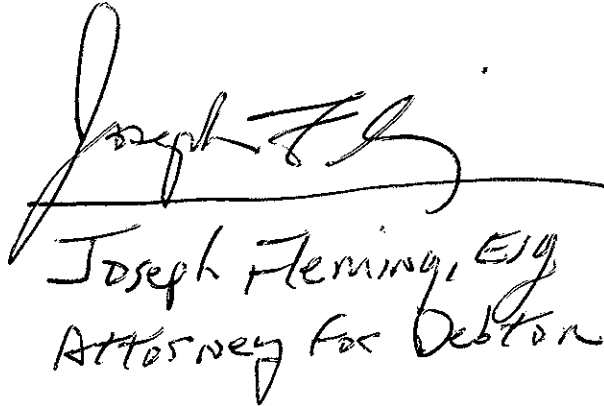 Joseph Fl
Joseph Fleming, Esq
Attorney for Debtor